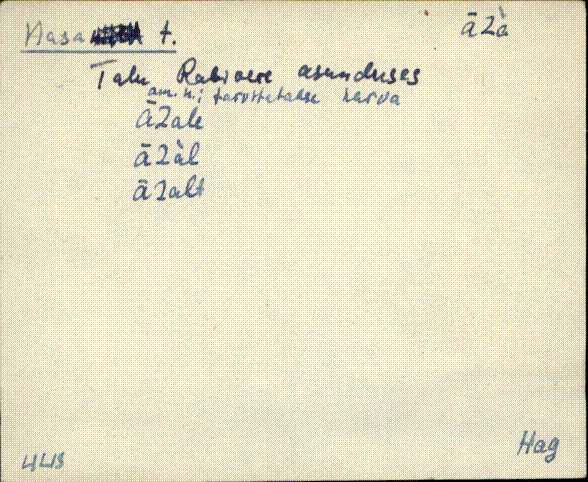 Aasa t. āzà
Talu Rabivere asunduses
am. n.; tarvitatakse harva
āzale
āzàl
āzalt
Hag